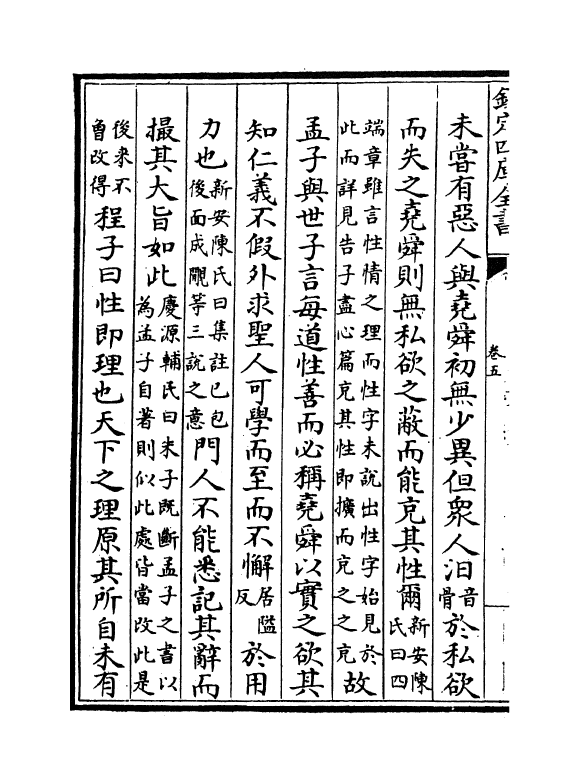 欽定四庫全書
卷五
未嘗有惡人與堯舜初無少異但衆人汨音骨於私欲
而失之堯舜則無私欲之蔽而能充其性爾新安陳氏曰四
端章雖言性情之理而性字未說出性字始見於此而詳見告子盡心篇充其性即擴而充之之充故
孟子與世子言每道性善而必稱堯舜以實之欲其
知仁義不假外求聖人可學而至而不懈居隘反於用
力也新安陳氏曰集註已包後面成覵等三說之意門人不能悉記其辭而
撮其大旨如此慶源輔氏曰朱子既斷孟子之書以為孟子自著則似此處皆當改此是
後来不曾改得程子曰性即理也天下之理原其所自未有